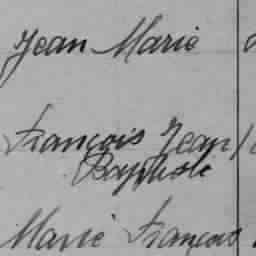 Jean Marie
François Jean
Baptiste
Marie François